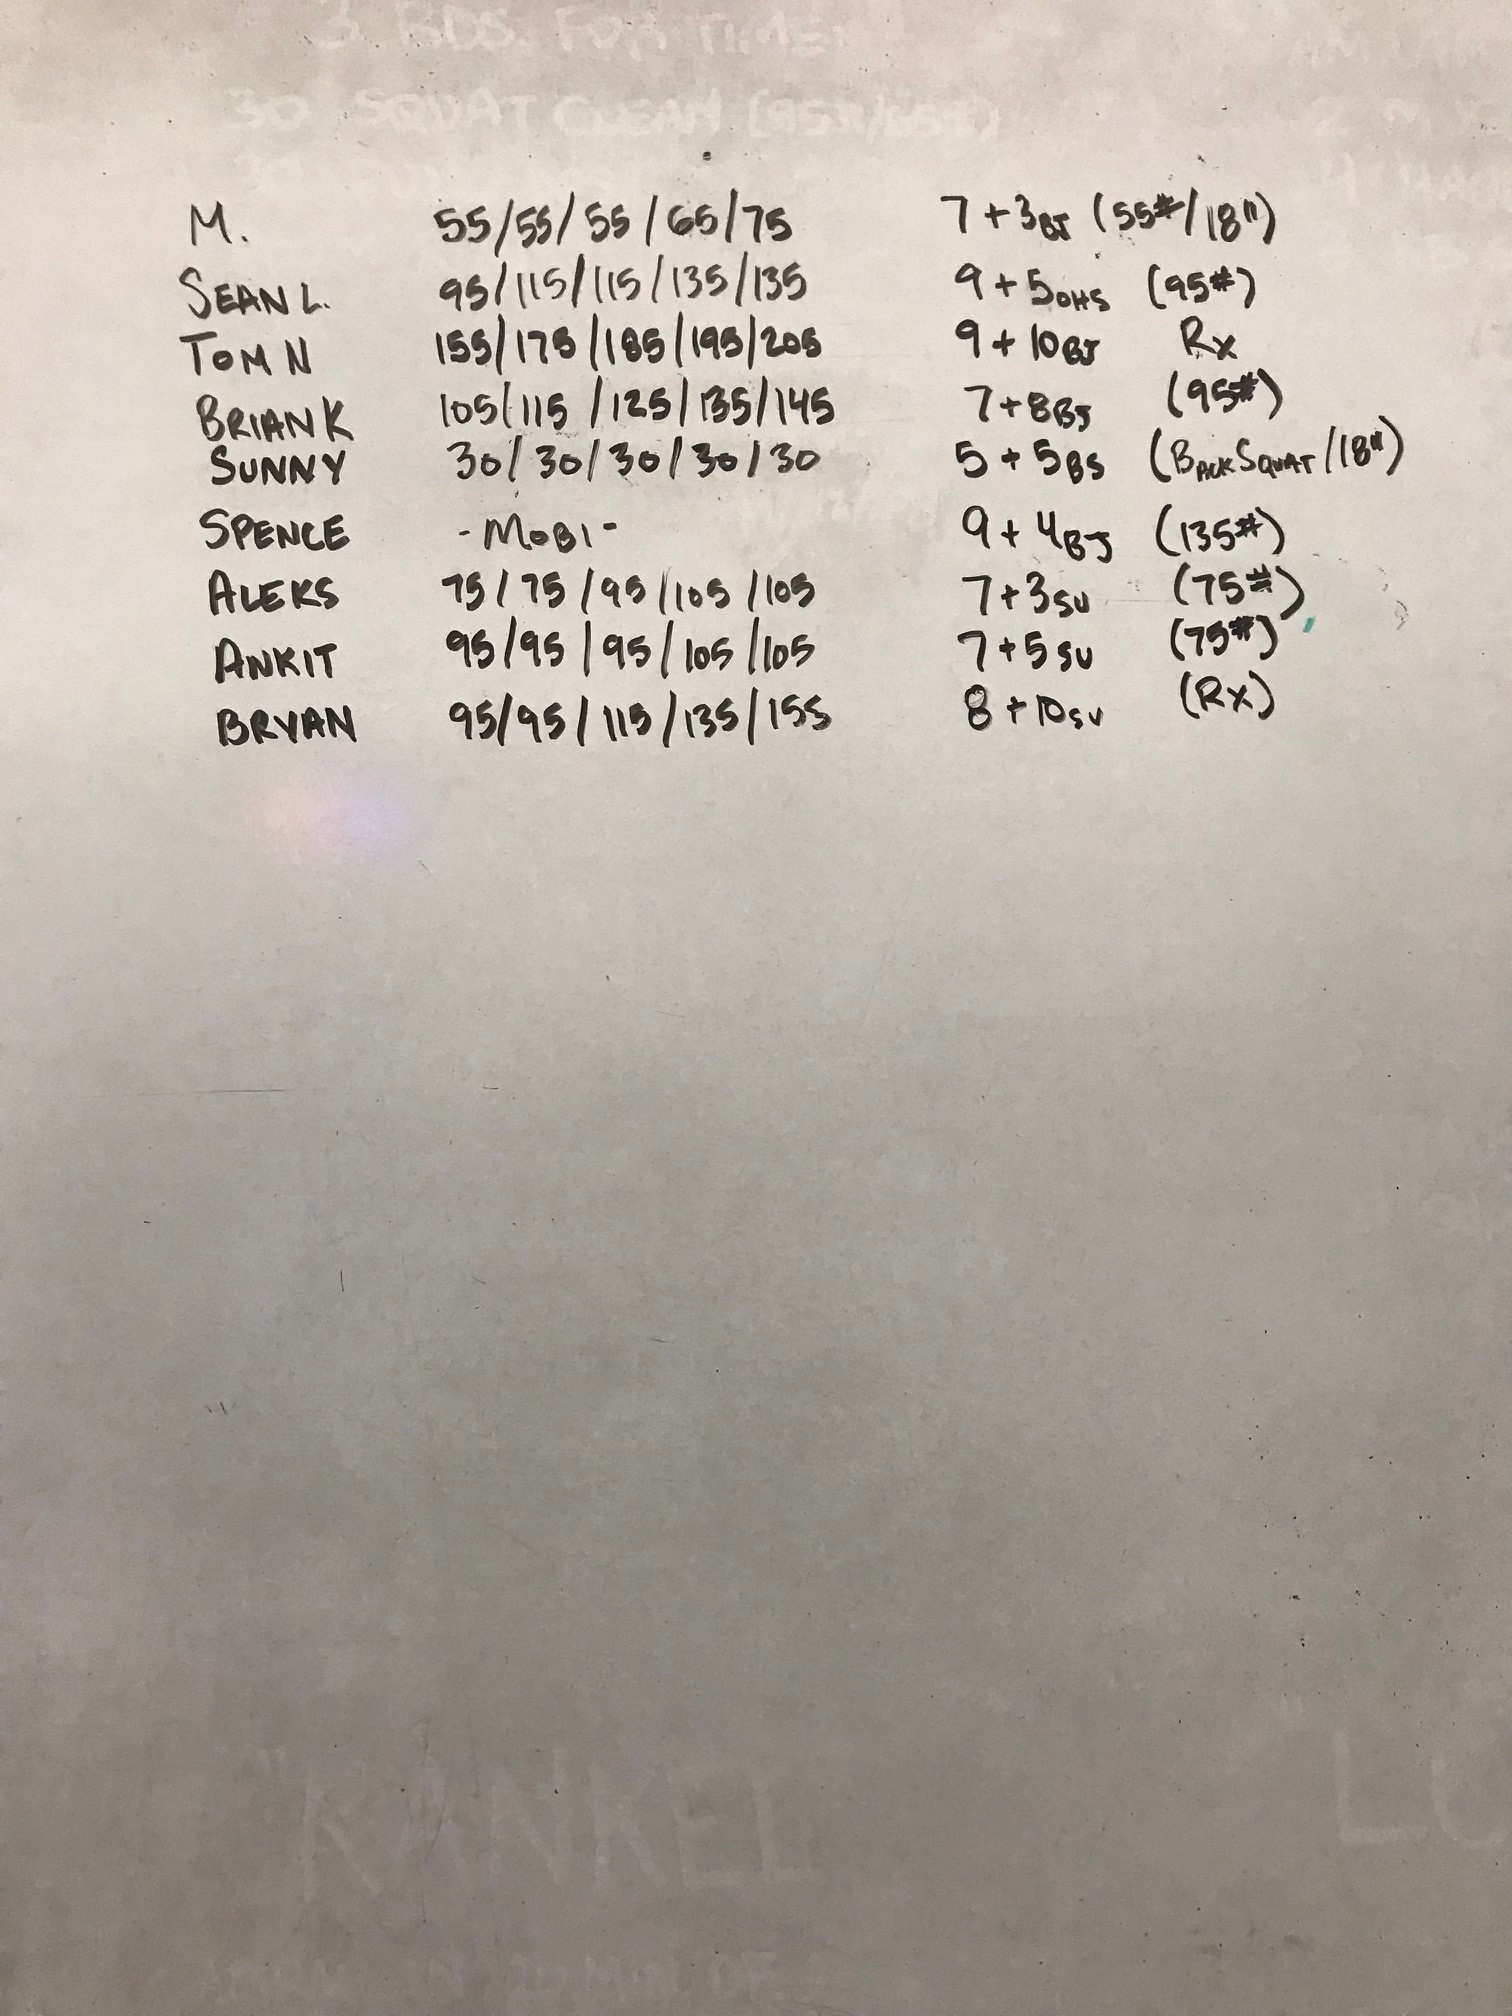 3 RDS. FOR TIME:
30 SQUAT CLEAN
M. 55/55/55/65/75 7+3BJ (55#/18")
SEAN L. 95/115/115/135/135 9+5OHS (95#)
TOM N 155/175/185/195/205 9+10BJ Rx
BRIAN K 105/115/125/135/145 7+8BJ (95#)
SUNNY 30/30/30/30/30 5+5BS (BACKSQUAT/18")
SPENCE -MOBI- 9+4BJ (135#)
ALEKS 75/75/95/105/105 7+3SU (75#)
ANKIT 95/95/95/105/105 7+5SU (75#)
BRYAN 95/95/115/135/155 8+10SU (Rx)